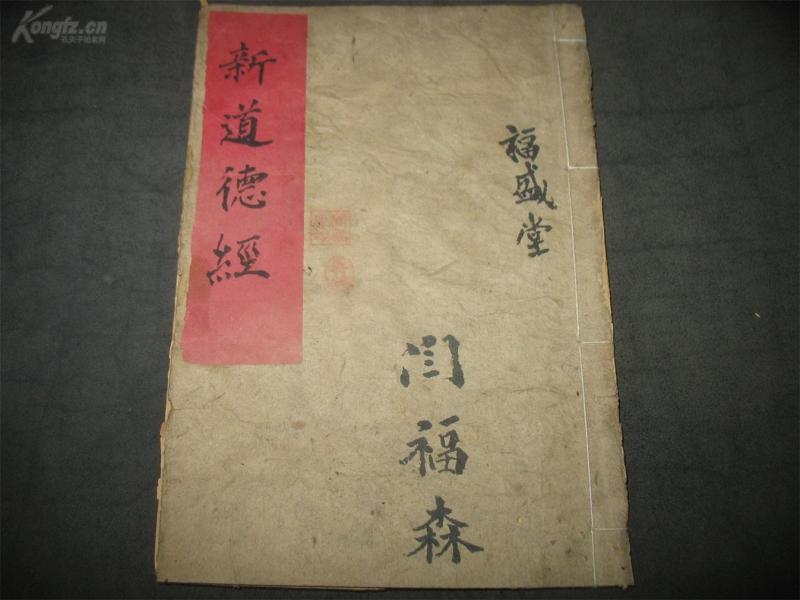 Kongfz.cn
孔夫子旧书网
新道德經
福盛堂
闫福森